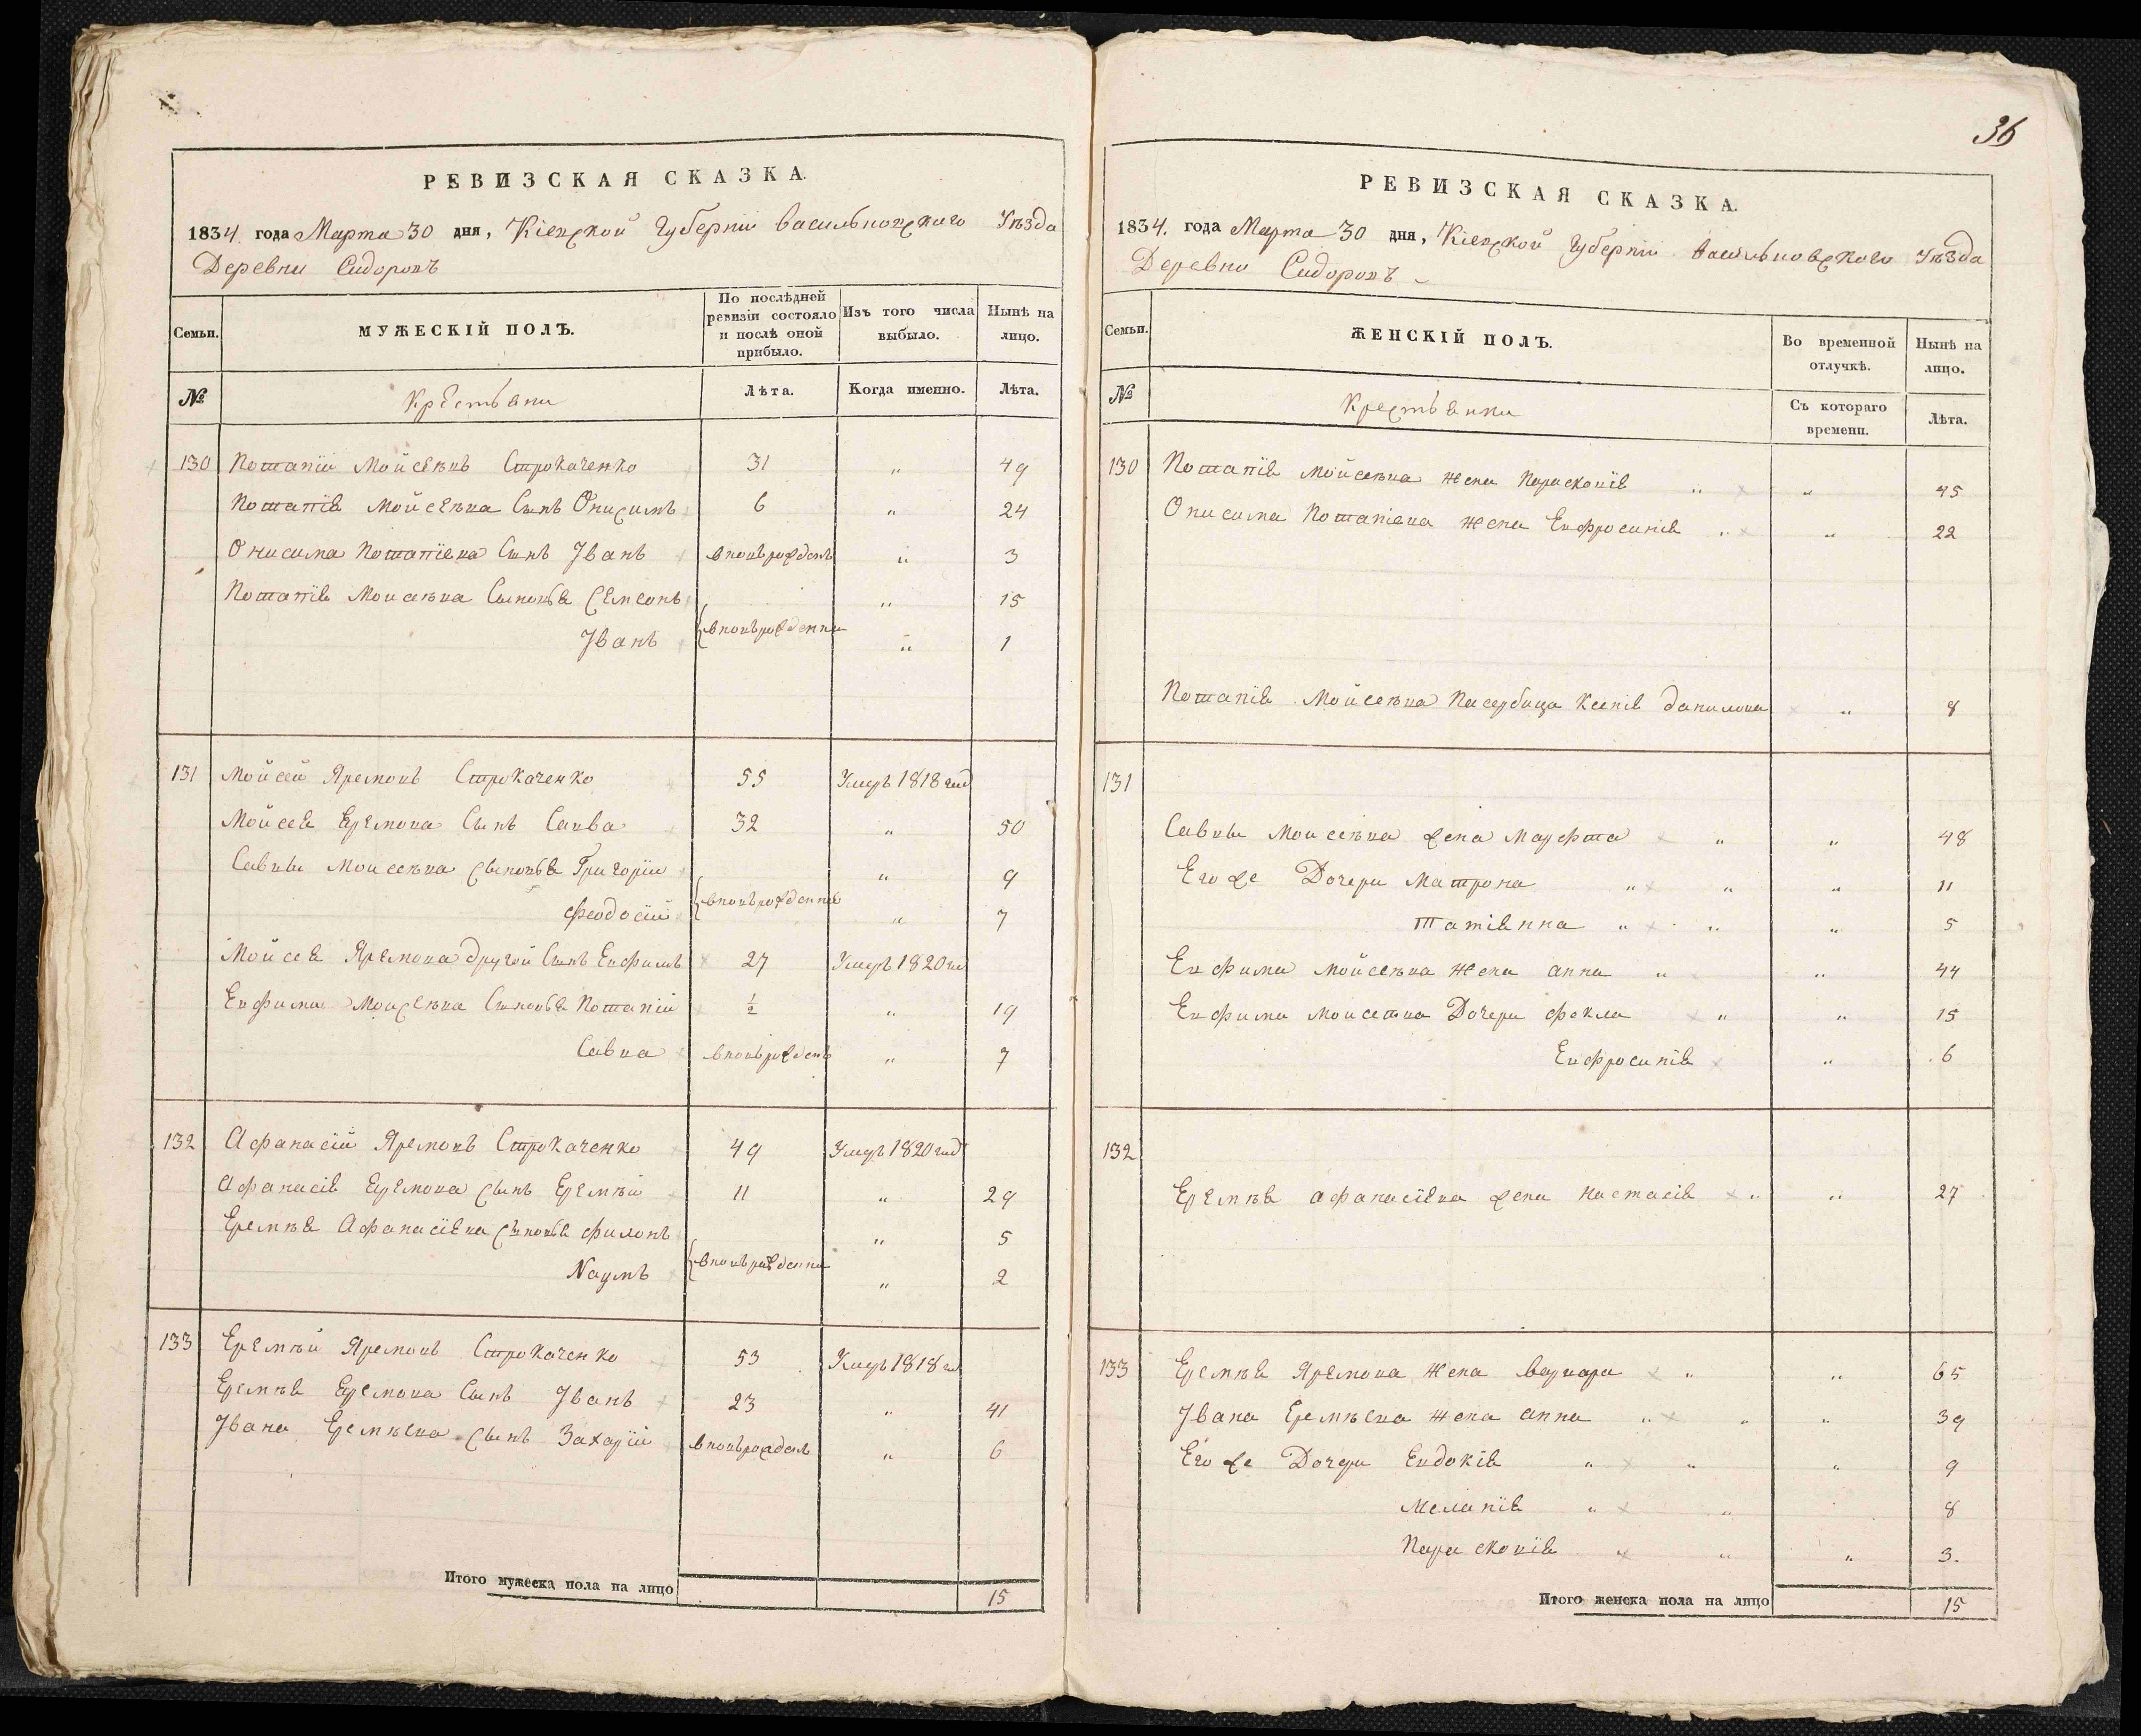 РЕВИЗСКАЯ СКАЗКА.
1834. года Марта 30 дня, Кіевской Губерніи Васильковскаго Уѣзда
Деревни Сидоровъ
Семьи. МУЖЕСКІЙ ПОЛЪ. По послѣдней ревизіи состояло и послѣ оной прибыло. Изъ того числа выбыло. Нынѣ на лицо.
№ Крестьяни Лѣта. Когда именно. Лѣта.
130 Потапій Мойсѣевъ Строкаченко 31 " 49
Потапія Мойсѣева Сынъ Онисимъ 6 " 24
Онисима Потапіева Сынъ Іванъ вновьрожденъ " 3
Потапія Моисѣева Сыновья Семеонъ " 15
Іванъ вновьрожденни " 1
131 Мойсей Яремовъ Строкаченко 55 Умеръ 1818 год
Мойсея Еремова Сынъ Савва 32 " 50
Саввы Моисѣева сыновья Григорій " 9
Феодосій вновьрожденние " 7
Мойсея Яремова другой Сынъ Евфимъ 27 Умеръ 1820 го
Евфима Моисѣева Сыновья Потапій ½ " 19
Савва вновьрожденъ " 7
132 Афанасій Яремовъ Строкаченко 49 Умеръ 1820 год
Афанасія Еремова сынъ Еремѣй 11 " 29
Еремѣя Афанасіева сыновья Филонъ " 5
Наумъ вновьрожденни " 2
133 Еремѣй Яремовъ Строкаченко 53 Умеръ 1818 го
Еремѣя Еремова Сынъ Іванъ 23 " 41
Івана Еремѣева сынъ Захарій вновьрожден " 6
Итого мужеска пола на лицо 15
36
РЕВИЗСКАЯ СКАЗКА.
1834. года Марта 30 дня, Кіевской Губерніи Васильковскаго Уѣзда
Деревни Сидоровъ
Семьи. ЖЕНСКІЙ ПОЛЪ. Во временной отлучкѣ. Нынѣ на лицо.
№ Крестьянки Съ котораго времени. Лѣта.
130 Потапія Мойсѣева жена Парасковія " " 45
Онисима Потапіева жена Евфросинія " " 22
Потапія Мойсѣева Пасербица Ксенія Данилова " 8
131
Саввы Моисѣева жена Марфта " " 48
Его же Дочери Матрона " " " 11
Татіянна " " " 5
Евфима Мойсѣева жена анна " " 44
Евфима Моисѣева Дочери Фекла " " 15
Евфросинія " 6
132
Еремѣя афанасіева жена Настасія " " 27
133 Еремѣя Яремова жена Варвара " " 65
Івана Еремѣева жена анна " " " 39
Его же Дочери Евдокія " " " 9
Меланія " " 8
Парасковія " " " 3.
Итого женска пола на лицо 15